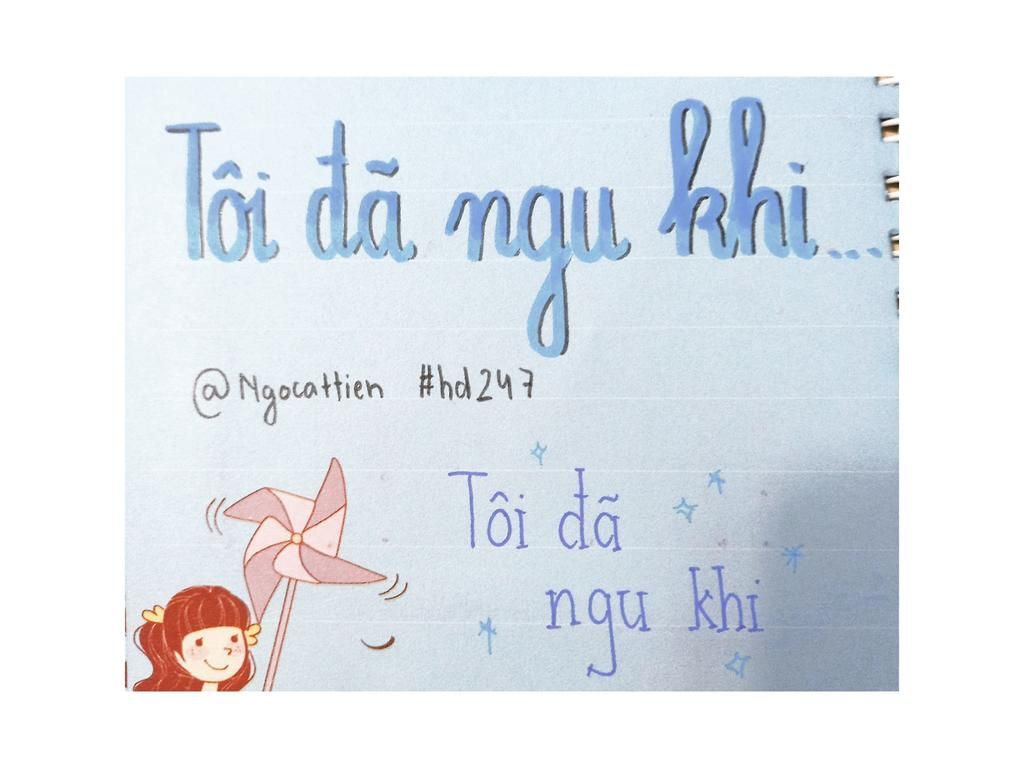 Tôi đã ngu khi...
@Ngocattien #hd247
Tôi đã
ngu khi